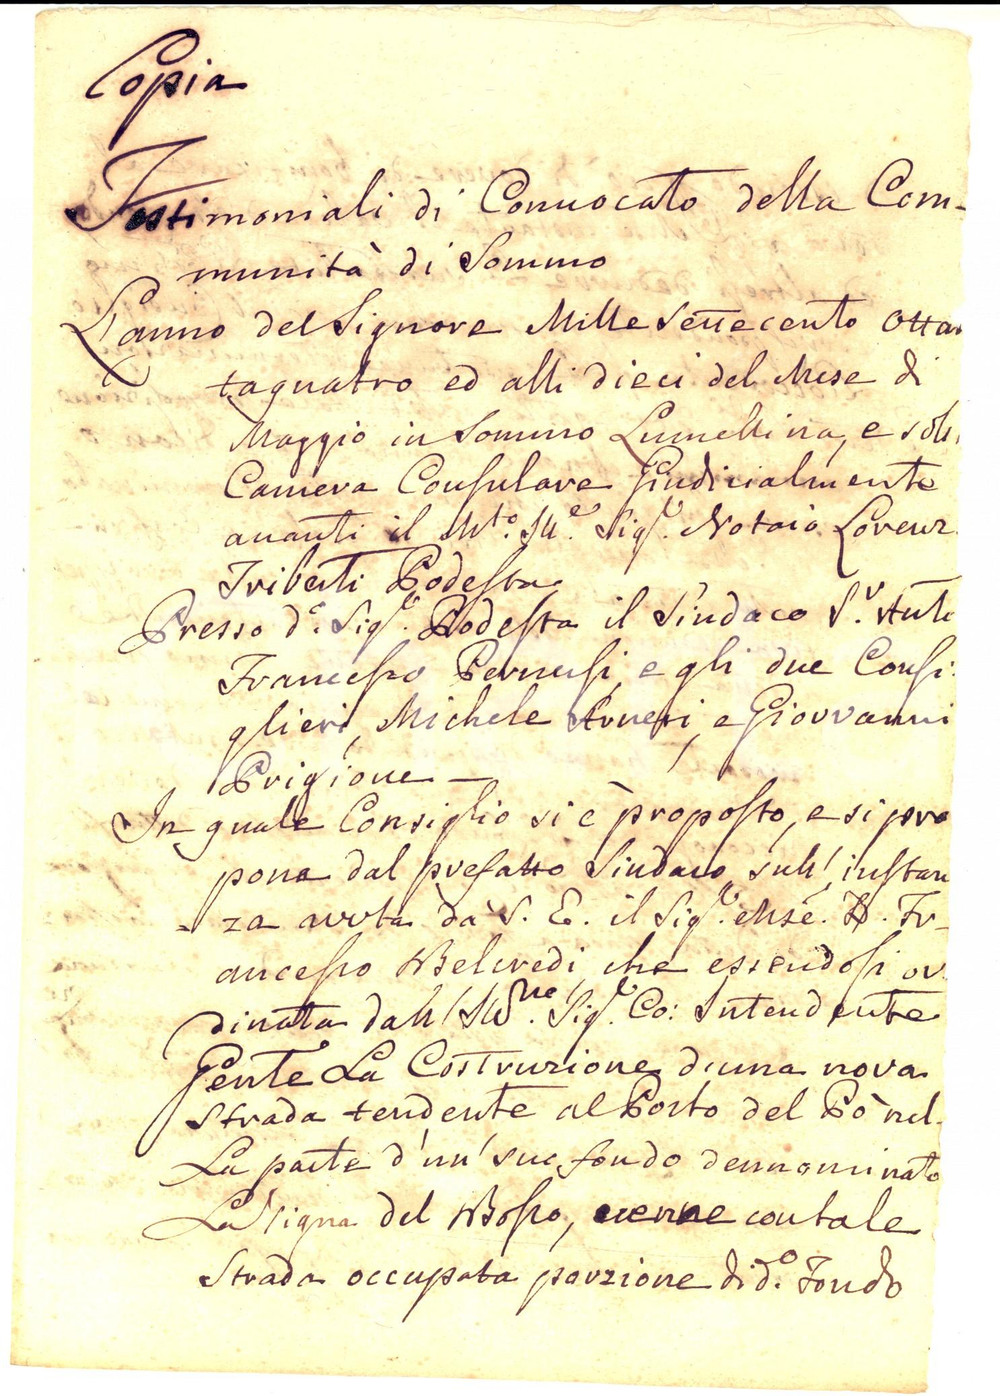 Copia
Testimoniali di Conuocato della Com-
munità di Sommo
L'anno del Signore Mille Settecento Ottan
taquatro ed alli dieci del Mese di
Maggio in Sommo Lumellina, e soli
Camera Consulare Giudicialmente
auanti il M.to Ill.e Sig.r Notaio Lorenz
Triberti Podesta
Presso d.o Sig.r Podesta il Sindaco S.r Ant
Francesco Pernisi, e gli due Consi-
glieri, Michele Arneri, e Giovvanni
Prigione —
In quale Consiglio si è proposto, e si pro
pone dal prefatto Sindaco sull' instan
za avuta dà S. E. il Sig.r Mse. D. Fr-
ancesco Belcredi che essendosi or
dinata dall' Ill.me Sig.r Co: Intendente
Gente La Costruzione d'una nova
strada tendente al Porto del Pò nel-
La parte d'un' suo fondo denominato
La Vigna del Bosco, venne contale
Strada occupata porzione di d.o Fondo